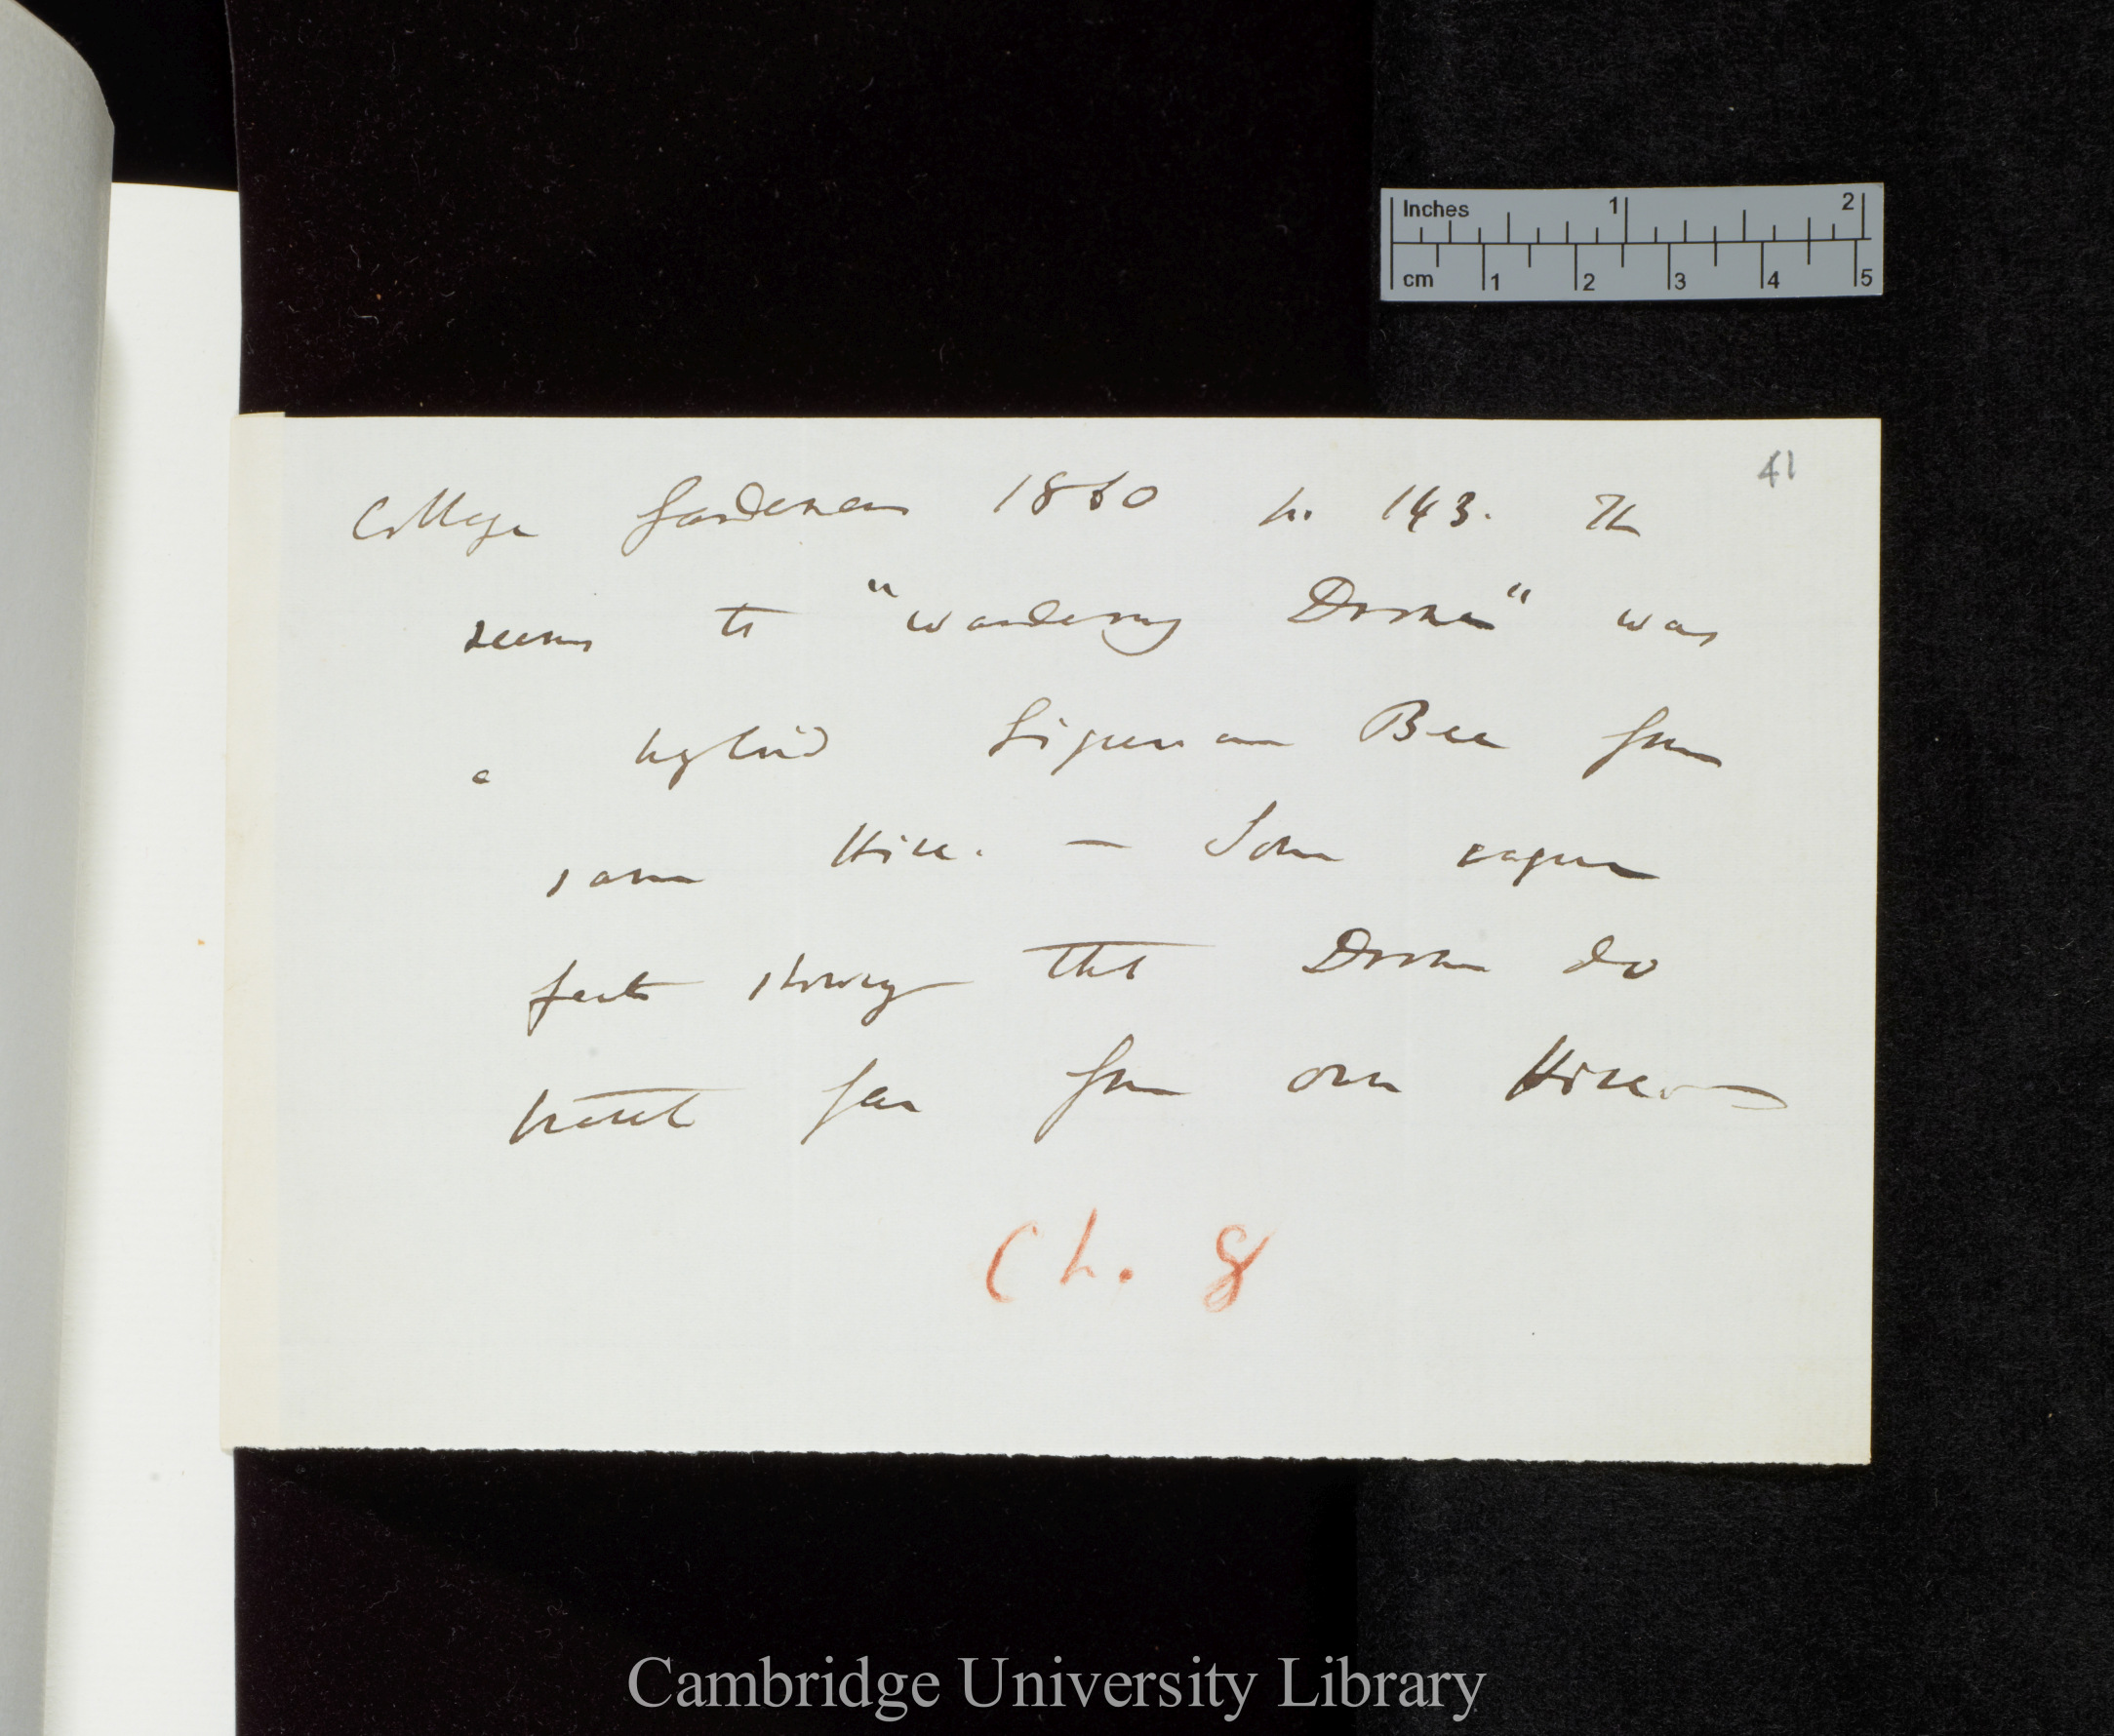 Inches 1 2
cm 1 2 3 4 5
41
Cottage Gardener 1860 p. 143. The
seems to "wandering Drones" was
a hybrid Ligurian Bee from
same Hive. — Some vague
facts showing that Drones do
travel far from own Hives
Ch. 8
Cambridge University Library